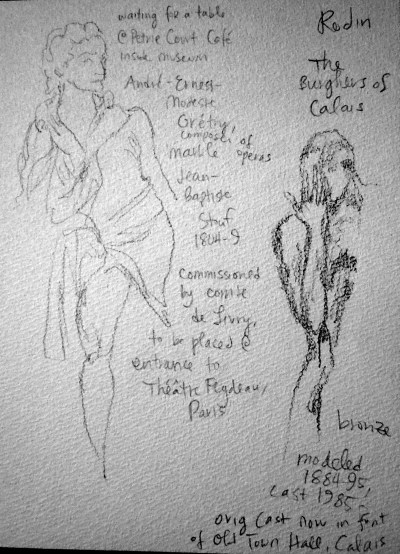 waiting for a table
@ Petrie Court Café
inside museum
André-Ernest-
Modeste
Grétry
composer of
marble operas
Jean-
Baptiste
Stouf
1804-9
Commissioned
by comte
de Livry,
to be placed @
entrance to
Théâtre Feydeau,
Paris
Rodin
The
Burghers of
Calais
bronze
modeled
1884-95
cast 1985!
orig cast now in front
of Old Town Hall, Calais